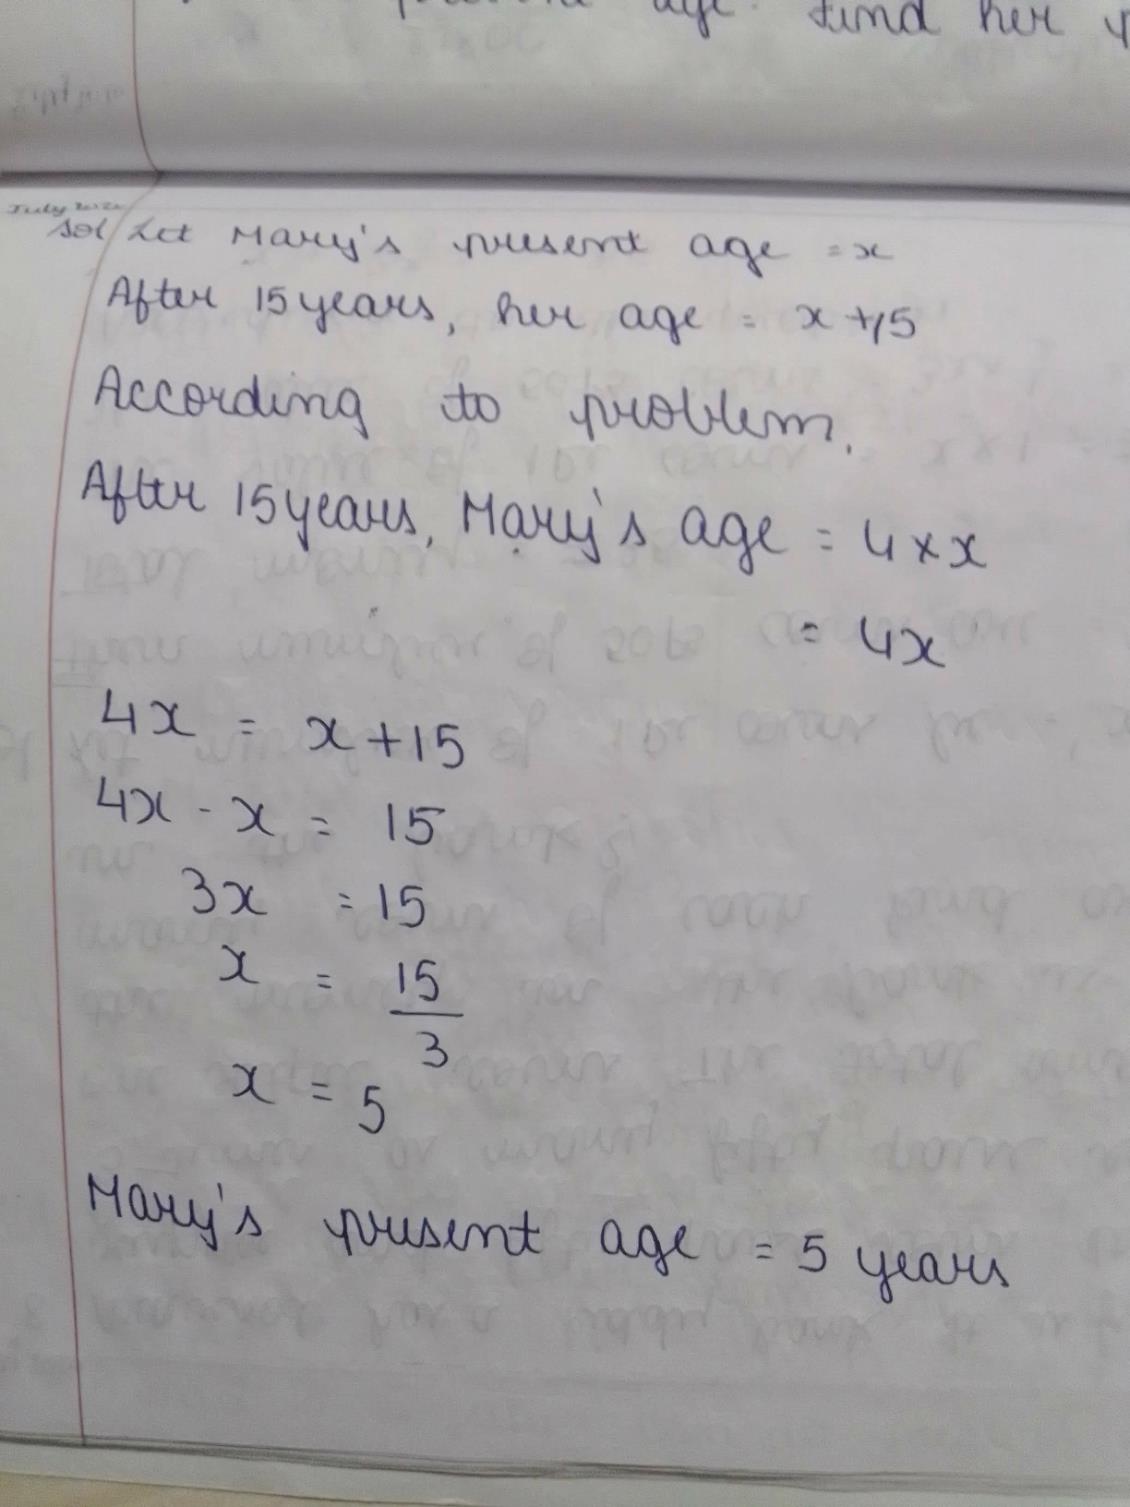 present age. Find her
July
Sol Let Mary's present age = x
After 15 years, her age = x + 15
According to problem,
After 15 years, Mary's age = 4 × x
= 4x
4x = x + 15
4x - x = 15
3x = 15
x = 15
3
x = 5
Mary's present age = 5 years